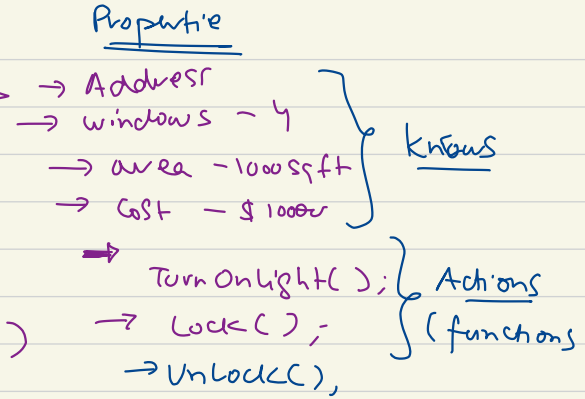 Propertie
→ Address
→ windows - 4
→ area - 1000 sqft
→ Cost - $ 10000
} knows
→
TurnOnlight();
→ Lock();
→ UnLock(),
} Actions
(functions
)